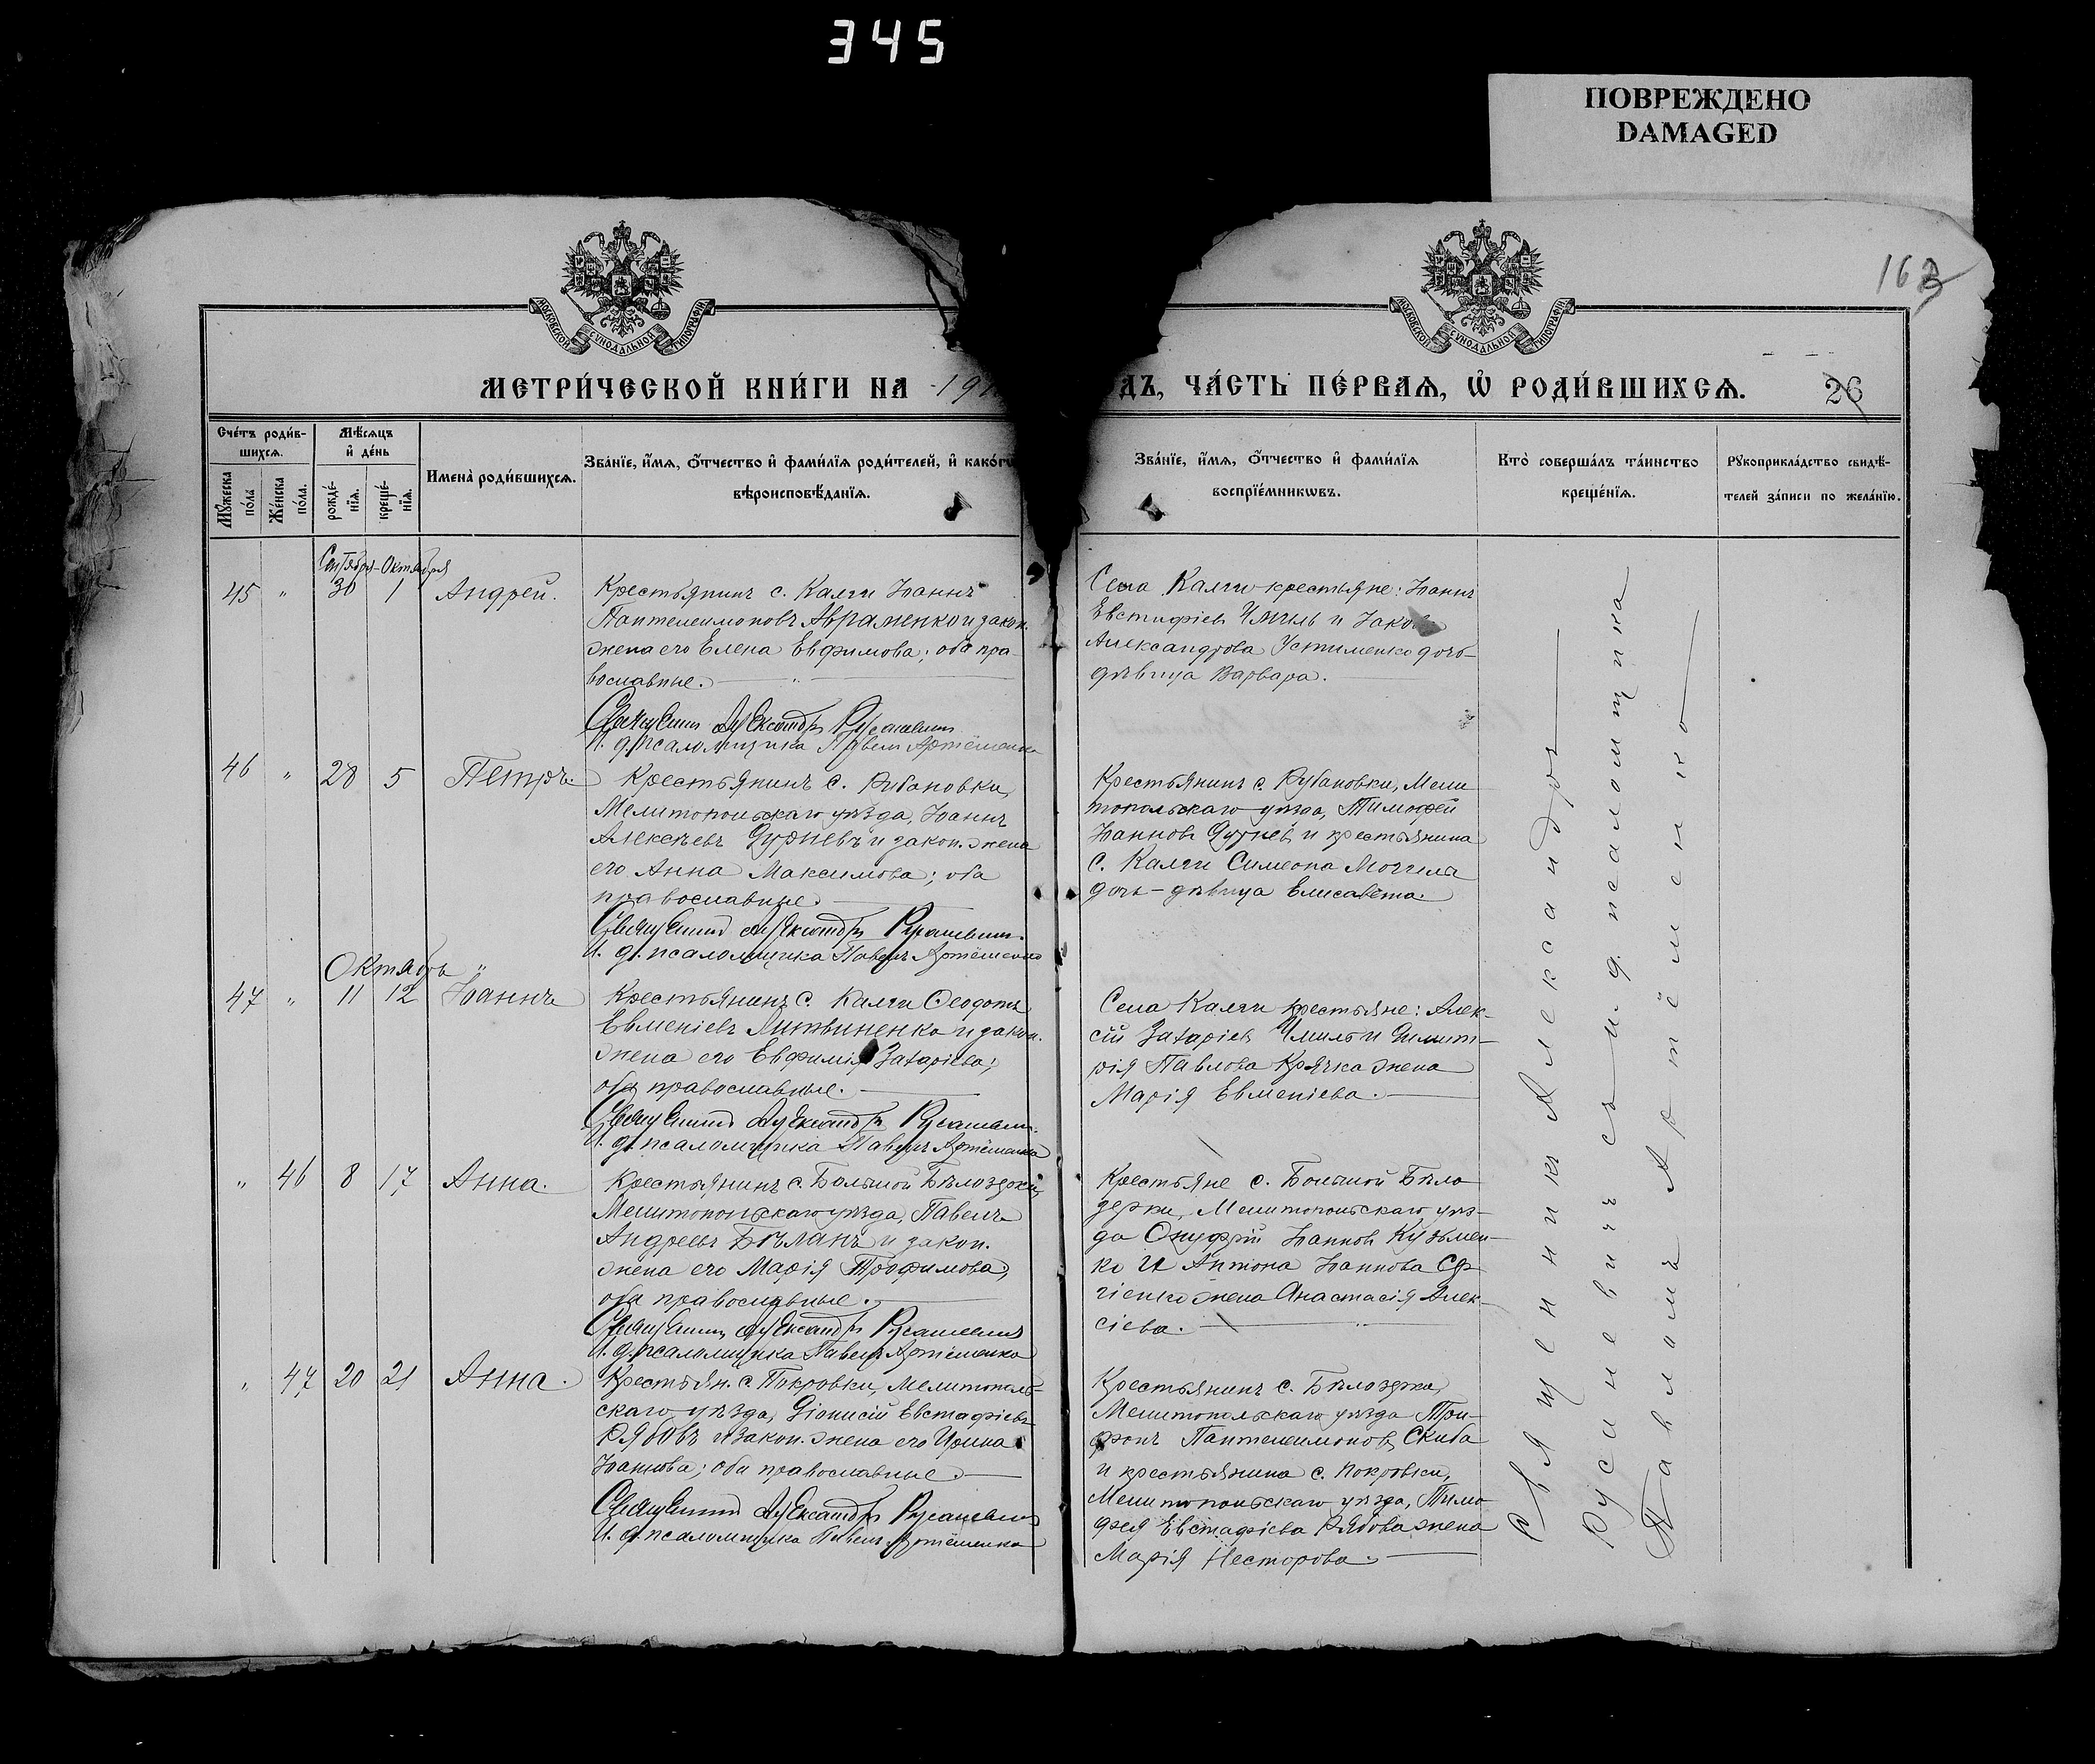 345
ПОВРЕЖДЕНО
DAMAGED
МОСКОВСКОЙ СѴНОДАЛЬНОЙ ТИПОГРАФІИ
МОСКОВСКОЙ СѴНОДАЛЬНОЙ ТИПОГРАФІИ
МЕТРИ́ЧЕСКОЙ КНИ́ГИ НА 191
ДЪ, ЧА́СТЬ ПЕ́РВАѦ, Ѡ҆ РОДИ́ВШИХСѦ. 26
Сче́тъ роди́в-
шихсѧ.
Мꙋ́жеска по́ла
Же́нска по́ла.
Мѣ́сѧцъ
и҆ де́нь
рожде́-
нїѧ.
креще́-
нїѧ.
Имена̀ роди́вшихсѧ.
Зва́нїе, и҆́мѧ, ѻ҆́тчество и҆ фами́лїѧ роди́телей, и҆ како́гѡ
вѣроисповѣ́данїѧ.
Зва́нїе, и҆́мѧ, ѻ҆́тчество и҆ фами́лїѧ
воспрїе́мникѡвъ.
Кто̀ соверша́лъ та́инство
креще́нїѧ.
Рꙋкоприкла́дство свидѣ́-
телей за́писи по жела́нїю.
Сентября - Октября
45 " 30 1 Андрей.
Крестьянинъ с. Калги Іоаннъ
Пантелеимоновъ Авраменко и закон.
жена его Елена Евфимова; оба пра-
вославные.
Священникъ Александръ Русаневичъ
И. д. псаломщика Павелъ Артёменко
Села Калги крестьяне: Іоаннъ
Евстафіевъ Чмиль и Іакова
Александрова Устименко дочь-
дѣвица Варвара.
46 " 28 5 Петръ.
Крестьянинъ с. Рубановки,
Мелитопольскаго уѣзда, Іоаннъ
Алексѣевъ Дурневъ и закон. жена
его Анна Максимова; оба
православные.
Священникъ Александръ Русаневичъ.
И. д. псаломщика Павелъ Артёменко
Крестьянинъ с. Рубановки, Мели
топольскаго уѣзда, Тимофей
Іоанновъ Дурневъ и крестьянина
с. Калги Симеона Могила
дочь - дѣвица Елисавета.
Октябрь "
47 " 11 12 Іоаннъ
Крестьянинъ с. Калги Ѳеодотъ
Евменіевъ Литвиненко и закон.
жена его Евфимія Захаріева;
оба православные.
Священникъ Александръ Русаневичъ.
И. д. псаломщика Павелъ Артёменко
Села Калги крестьяне: Алек-
сій Захаріевъ Чмиль и Димит-
рія Павлова Крячка жена
Марія Евменіева.
" 46 8 17 Анна.
Крестьянинъ с. Большой Бѣлозерки,
Мелитопольскаго уѣзда, Павелъ
Андреевъ Бѣланъ и закон.
жена его Марія Трофимова;
оба православные.
Священникъ Александръ Русаневичъ
И. д. псаломщика Павелъ Артёменко
Крестьяне с. Большой Бѣло
зерки, Мелитопольскаго уѣз-
да Онуфрій Іоанновъ Кузьмен-
ко и Антона Іоаннова Сер
гіенко жена Анастасія Алек-
сіева.
" 47 20 21 Анна.
Крестьян. с. Покровки, Мелитополь-
скаго уѣзда, Діонисій Евстафіевъ
Рябовъ и закон. жена его Ирина
Іоаннова; оба православные.
Священникъ Александръ Русаневичъ
И. д. псаломщика Павелъ Артёменко
Крестьянинъ с. Бѣлозерка,
Мелитопольскаго уѣзда Три-
фонъ Пантелеимоновъ Скиба
и крестьянина с. Покровки,
Мелитопольскаго уѣзда, Тимо
фея Евстафіева Рябова жена
Марія Несторова.
Священникъ Александръ
Русаневичъ съ и. д. псаломщика
Павломъ Артёменко